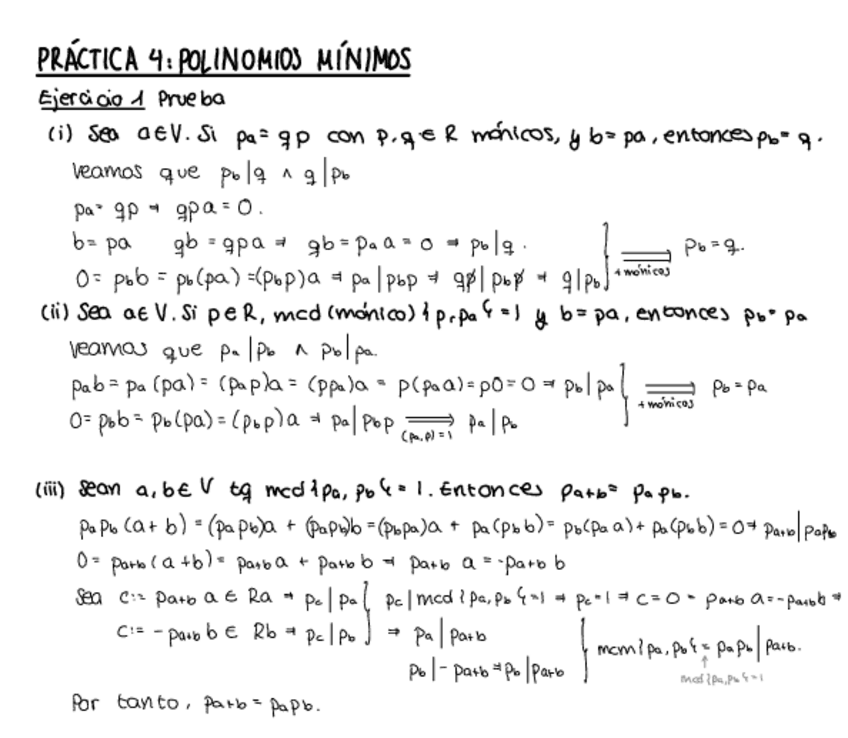 PRÁCTICA 4: POLINOMIOS MÍNIMOS
Ejercicio 1 Prueba
(i) Sea a∈V. Si pa = qp con p,q ∈ R mónicos, y b = pa, entonces pb = q.
Veamos que pb|q ∧ q|pb
pa = qp ⇒ qpa = 0.
b = pa qb = qpa ⇒ qb = pa a = 0 ⇒ pb|q.
0 = pb b = pb(pa) = (pb p)a ⇒ pa|pb p ⇒ qp|pb p ⇒ q|pb } ⟹ +mónicos pb = q.
(ii) Sea a∈V. Si p∈R, mcd (mónico) {p,pa} = 1 y b = pa, entonces pb = pa
Veamos que pa|pb ∧ pb|pa.
pa b = pa(pa) = (pa p)a = (p pa)a = p(pa a) = p0 = 0 ⇒ pb|pa } ⟹ +mónicos pb = pa
0 = pb b = pb(pa) = (pb p)a ⇒ pa|pb p ⟹ (pa,p)=1 pa|pb
(iii) Sean a,b∈V tq mcd{pa, pb} = 1. Entonces pa+b = pa pb.
pa pb (a+b) = (pa pb)a + (pa pb)b = (pb pa)a + pa(pb b) = pb(pa a) + pa(pb b) = 0 ⇒ pa+b|pa pb
0 = pa+b (a+b) = pa+b a + pa+b b ⇒ pa+b a = -pa+b b
Sea c := pa+b a ∈ Ra ⇒ pc|pa } pc|mcd{pa, pb} = 1 ⇒ pc = 1 ⇒ c = 0 = pa+b a = -pa+b b ⇒
c := -pa+b b ∈ Rb ⇒ pc|pb ⇒ pa|pa+b } mcm{pa, pb} = pa pb|pa+b.
pb|-pa+b ⇒ pb|pa+b ↑ mcd{pa,pb}=1
Por tanto, pa+b = pa pb.